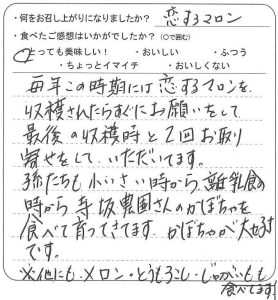 ・何をお召し上がりになりましたか? 恋するマロン
・食べたご感想はいかがでしたか?（○で囲む）
・とっても美味しい! ・おいしい ・ふつう
・ちょっとイマイチ ・おいしくない
毎年この時期には恋するマロンを
収穫さんたらすぐにお願いをして
最後の収穫時と2回お取り
寄せをしていただいてます。
孫たちも小さい時から、離乳食の
時から寺坂農園さんのかぼちゃを
食べて育ってきてます。かぼちゃが大好き
です。
※他にも・メロン・とうもろこし・じゃがいもも
食べてます!